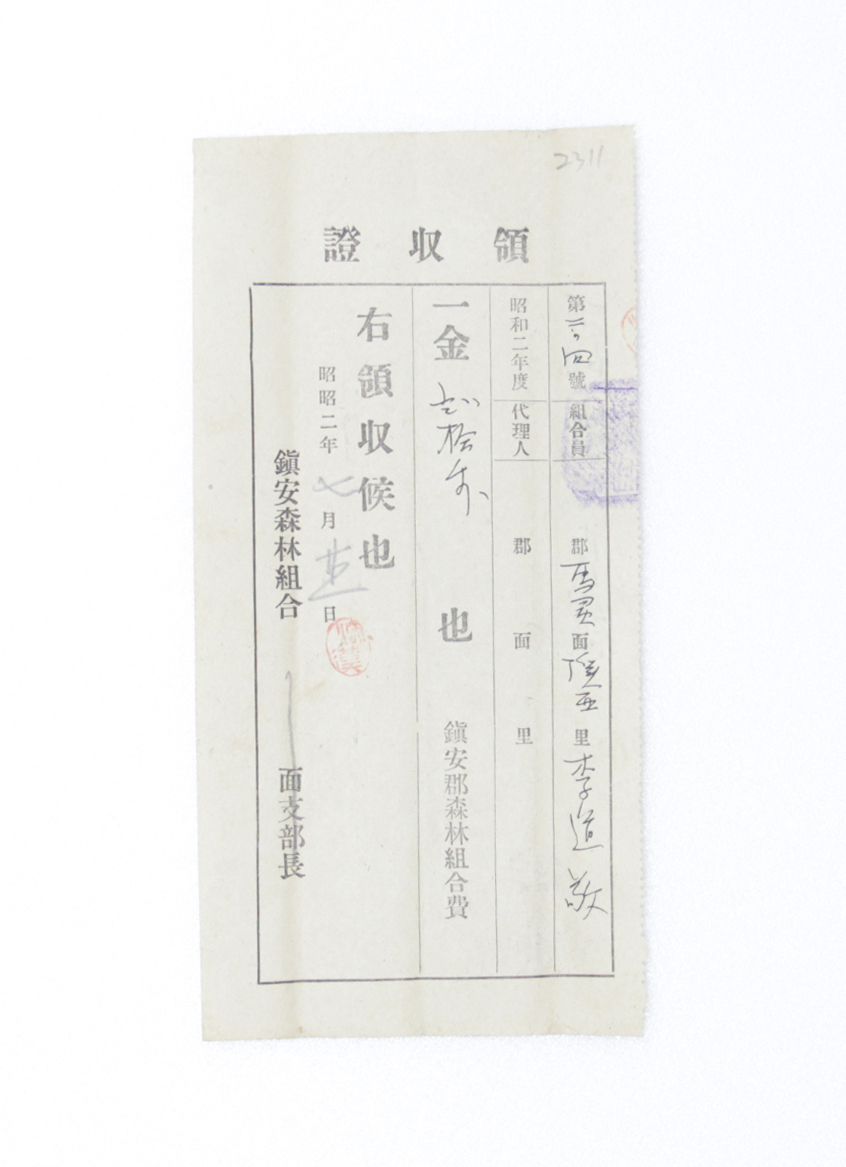 2311
領收證
第二〇四號 組合員 郡馬靈面 里李道敬
昭和二年度 代理人 郡 面 里
一金 貳拾錢 也 鎭安郡森林組合費
右領收候也
昭昭二年七月 日
鎭安森林組合 面支部長